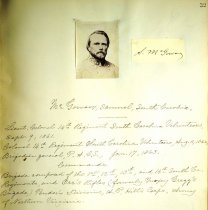 32
S. McGowan
McGowan, Samuel, South Carolina.
Lieut. Colonel 14th Regiment South Carolina Volunteers
Sept. 9, 1861.
Colonel 14th Regiment South Carolina Volunteers,
Brigadier general, P.A.C.S., Jan. 17, 1863.
Commands.
Brigade composed of the 1st, 12th, 13th, and 14th South Ca.
Regiments and Orr's Rifles (formerly Gregg's
Brigade) Division, A. P. Hill's Corps, Army
of Northern Virginia.